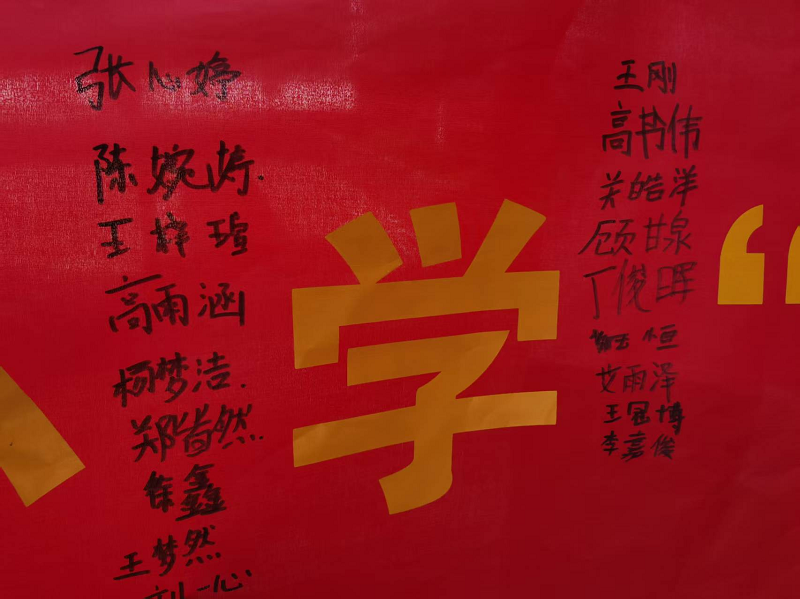 张心婷
陈婉婷
王梓瑄
高雨涵
杨梦洁.
郑皆然..
徐鑫
王梦然
刘一心
学
王刚
高书伟
关皓洋
顾甘泉
丁俊晖
桓
艾雨泽
王冠博
李嘉俊
“